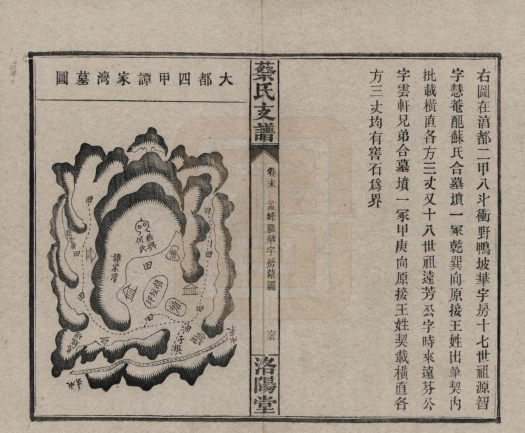 右圖在滇都二甲八斗衝野鴨坡華字房十七世祖源智
字慧菴醌蘇氏合墓墳一冢乾巽向原接王姓出筆契內
批載橫直各方三丈又十八世祖遠芳公字時來遠芬公
字雲軒兄弟合墓墳一冢甲庚向原接王姓契載橫直各
方三丈均有窖石爲界
蔡氏支譜
卷末
孟峰
華字房墓圖
洛陽堂
大都四甲譚家灣墓圖
譚家灣
田
田
田
田
田